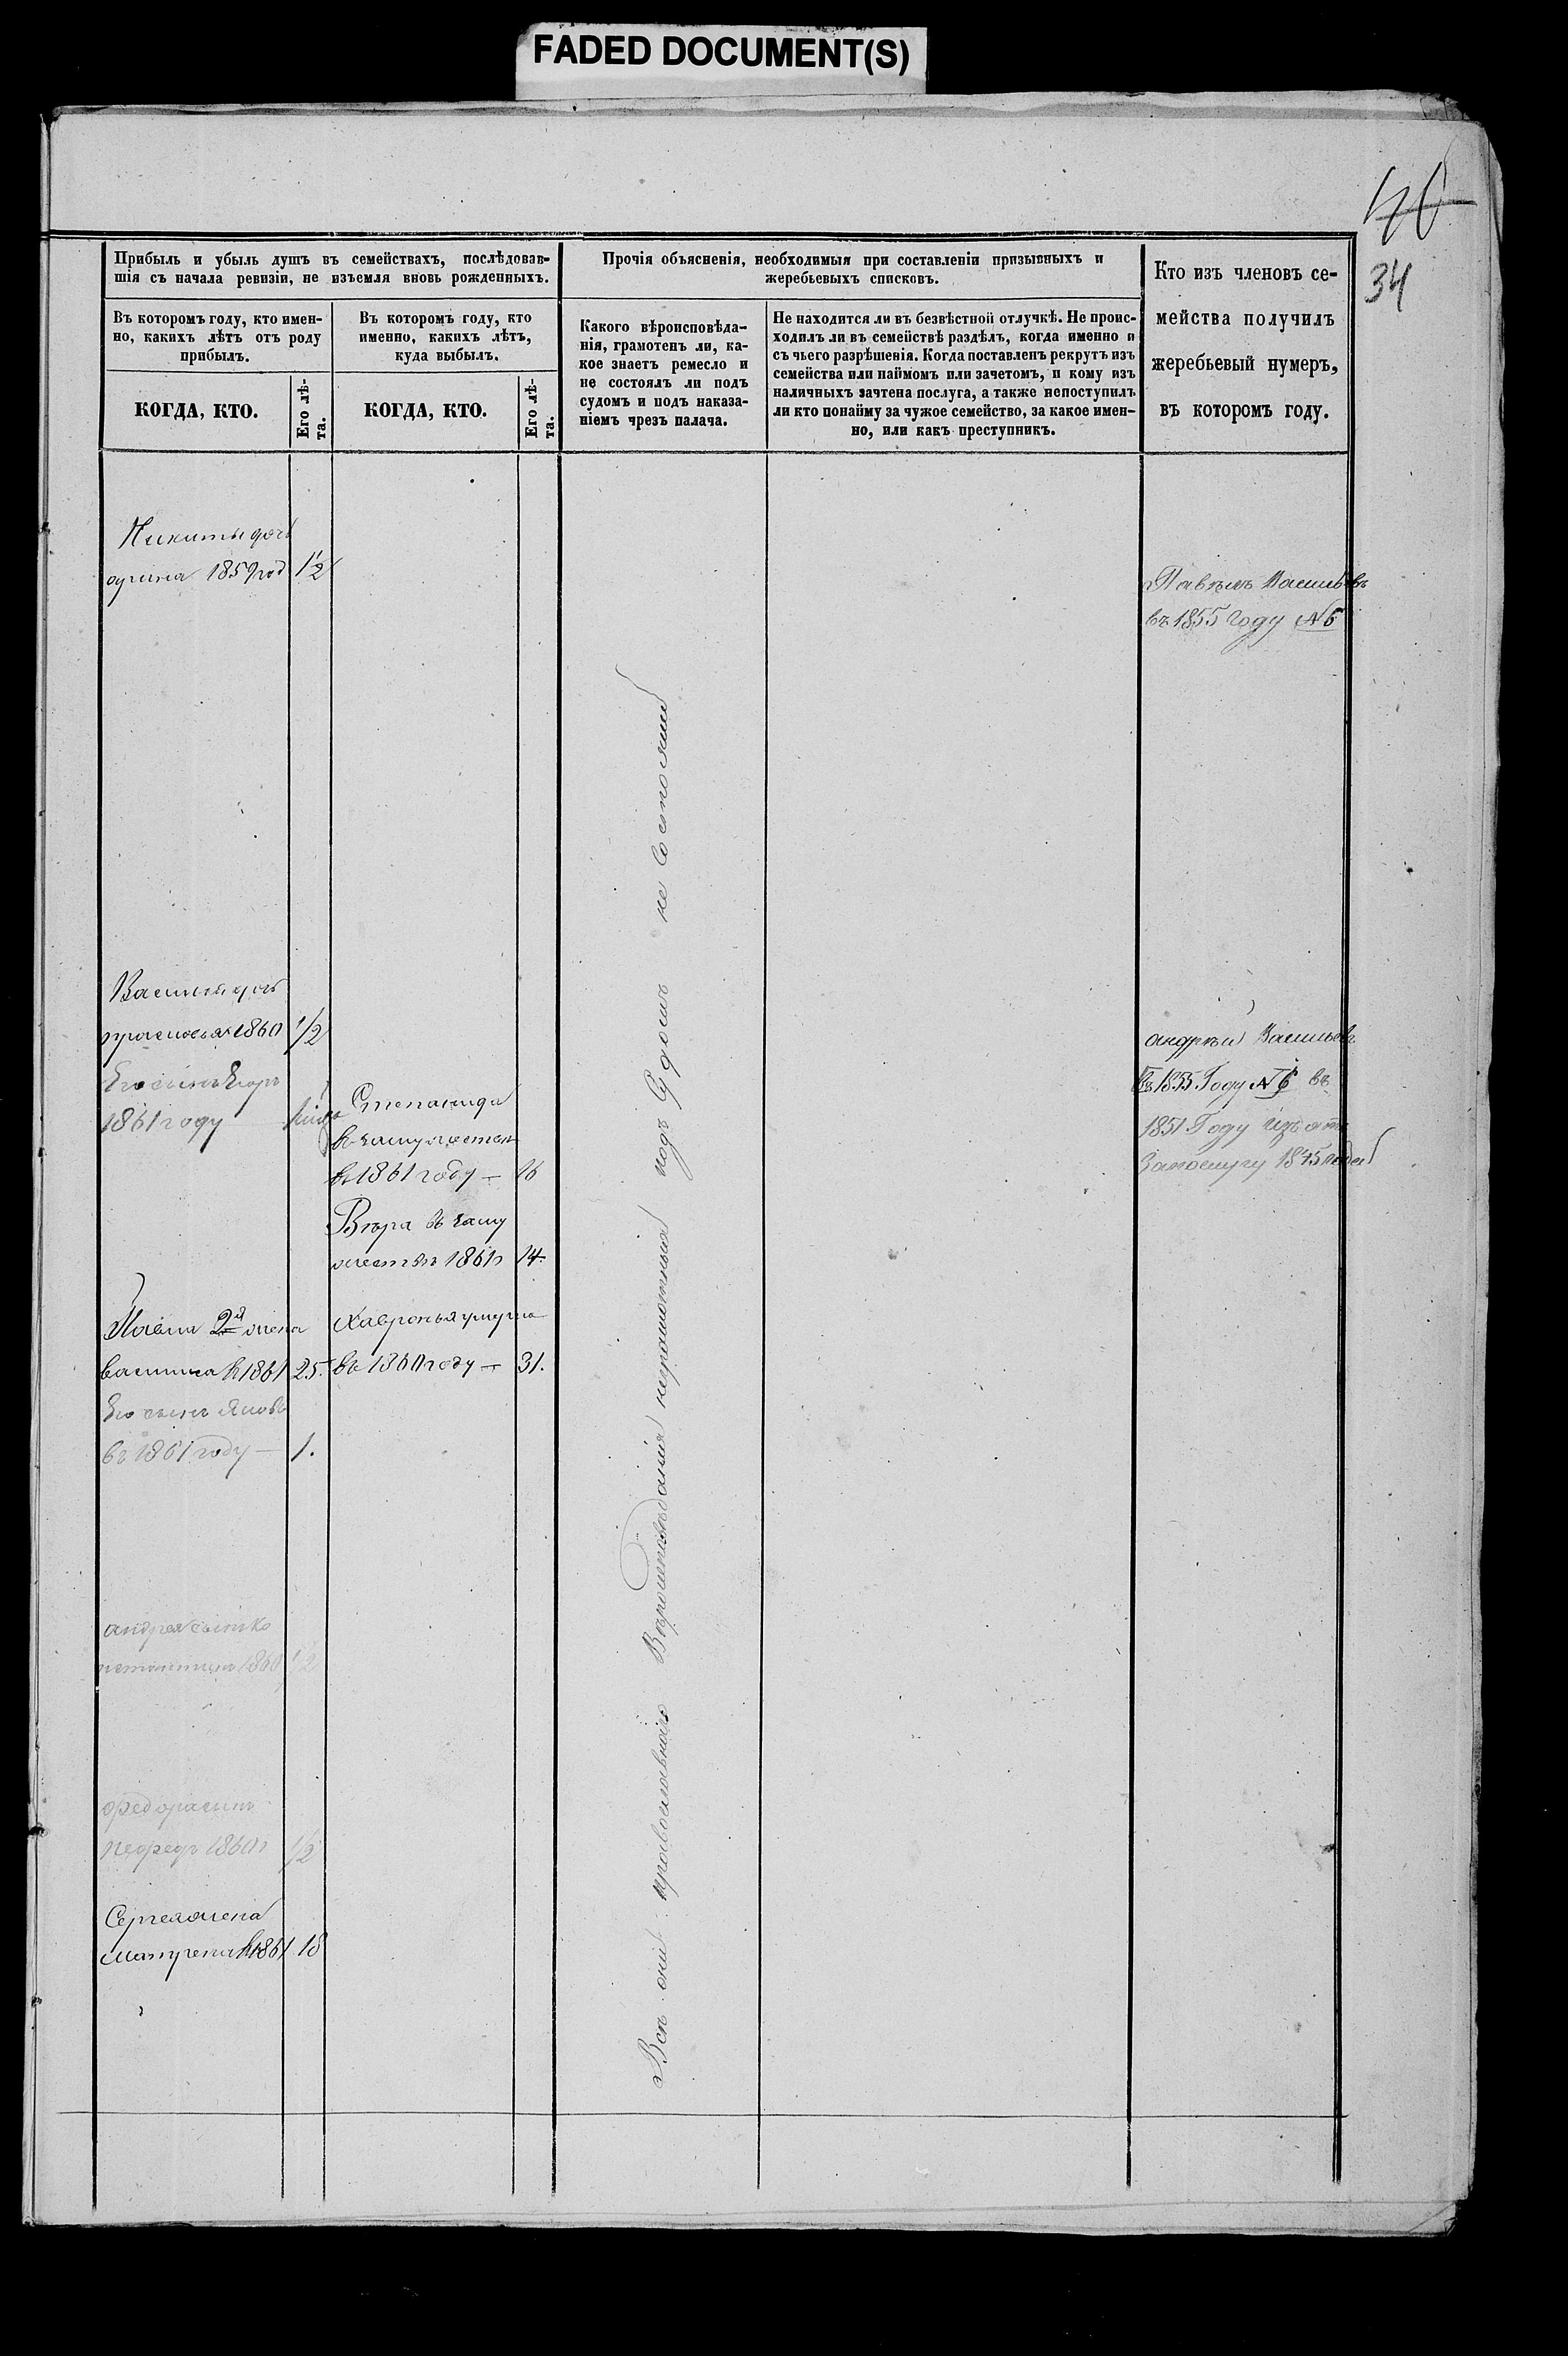 FADED DOCUMENT(S)
40
34
Прибыль и убыль душъ въ семействахъ, послѣдовав-
шія съ начала ревизіи, не изъемля вновь рожденныхъ.
Въ которомъ году, кто имен-
но, какихъ лѣтъ отъ роду
прибылъ.
КОГДА, КТО.
Его лѣ-
та.
Въ которомъ году, кто
именно, какихъ лѣтъ,
куда выбылъ.
КОГДА, КТО.
Его лѣ-
та.
Прочія объясненія, необходимыя при составленіи призывныхъ и
жеребьевыхъ списковъ.
Какого вѣроисповѣда-
нія, грамотенъ ли, ка-
кое знаетъ ремесло и
не состоялъ ли подъ
судомъ и подъ наказа-
ніемъ чрезъ палача.
Не находится ли въ безвѣстной отлучкѣ. Не проис-
ходилъ ли въ семействѣ раздѣлъ, когда именно и
съ чьего разрѣшенія. Когда поставленъ рекрутъ изъ
семейства или наймомъ или зачетомъ, и кому изъ
наличныхъ зачтена послуга, а также непоступилъ
ли кто понайму за чужое семейство, за какое имен-
но, или какъ преступникъ.
Кто изъ членовъ се-
мейства получилъ
жеребьевый нумеръ,
въ которомъ году.
Никиты доч
арина 1859 год 1/2
Василья доч
прасковья 1860 1/2
Его сынъ Егоръ
1861 году
Павла 2я жена
василиса 1861 25.
Его сынъ Яковъ
въ 1861 году — 1.
андрея сынъ
1860 1/2
федора сынъ
1860 1/2
Сергея жена
1861 18
Степанида
въ замужестве
въ 1861 году — 16
Вѣра въ заму
жествѣ 1861 14.
Хавронья умерла
въ 1860 году — 31.
Всѣ они православнаго Вѣроисповѣданія неграмотныя подъ Судомъ не Состояли
Павелъ Васильевъ
въ 1855 Году №6
андрѣй Васильевъ
въ 1855 Году №6 въ
1851 Году изъят
Запослугу 1845